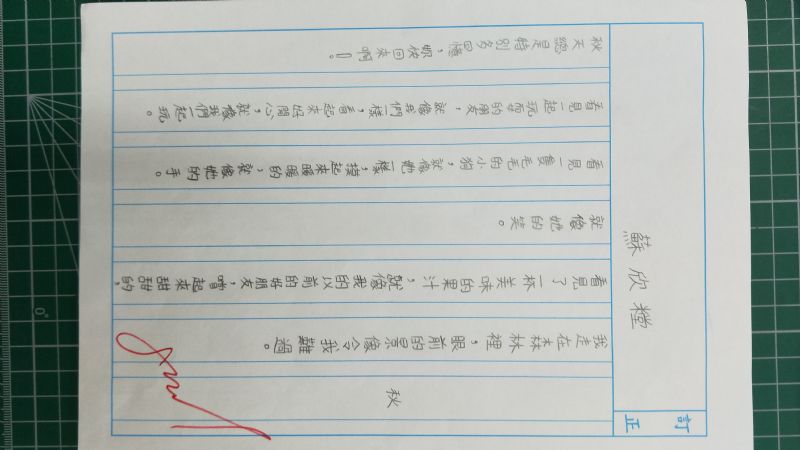 訂正
蘇欣糧
秋
我走在森林裡，眼前的景像令我難過。
看見了一杯美味的果汁，就像我的以前的好朋友，嚐起來甜甜的，
就像她的笑。
看見一隻毛毛的小狗，就像她一樣，摸起來暖暖的，就像她的手。
看見一起玩耍的朋友，就像我們一樣，看起來好開心，就像我們一起玩。
秋天總是特別多回憶，妳快回來啊！。